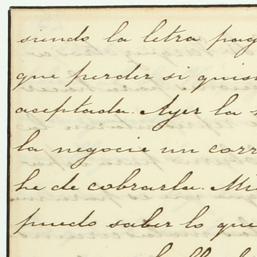 siendo la letra pag
que perder si quisi
aceptada. Ayer la
la negocié un corr
he de cobrarla. Mi
puedo saber lo que